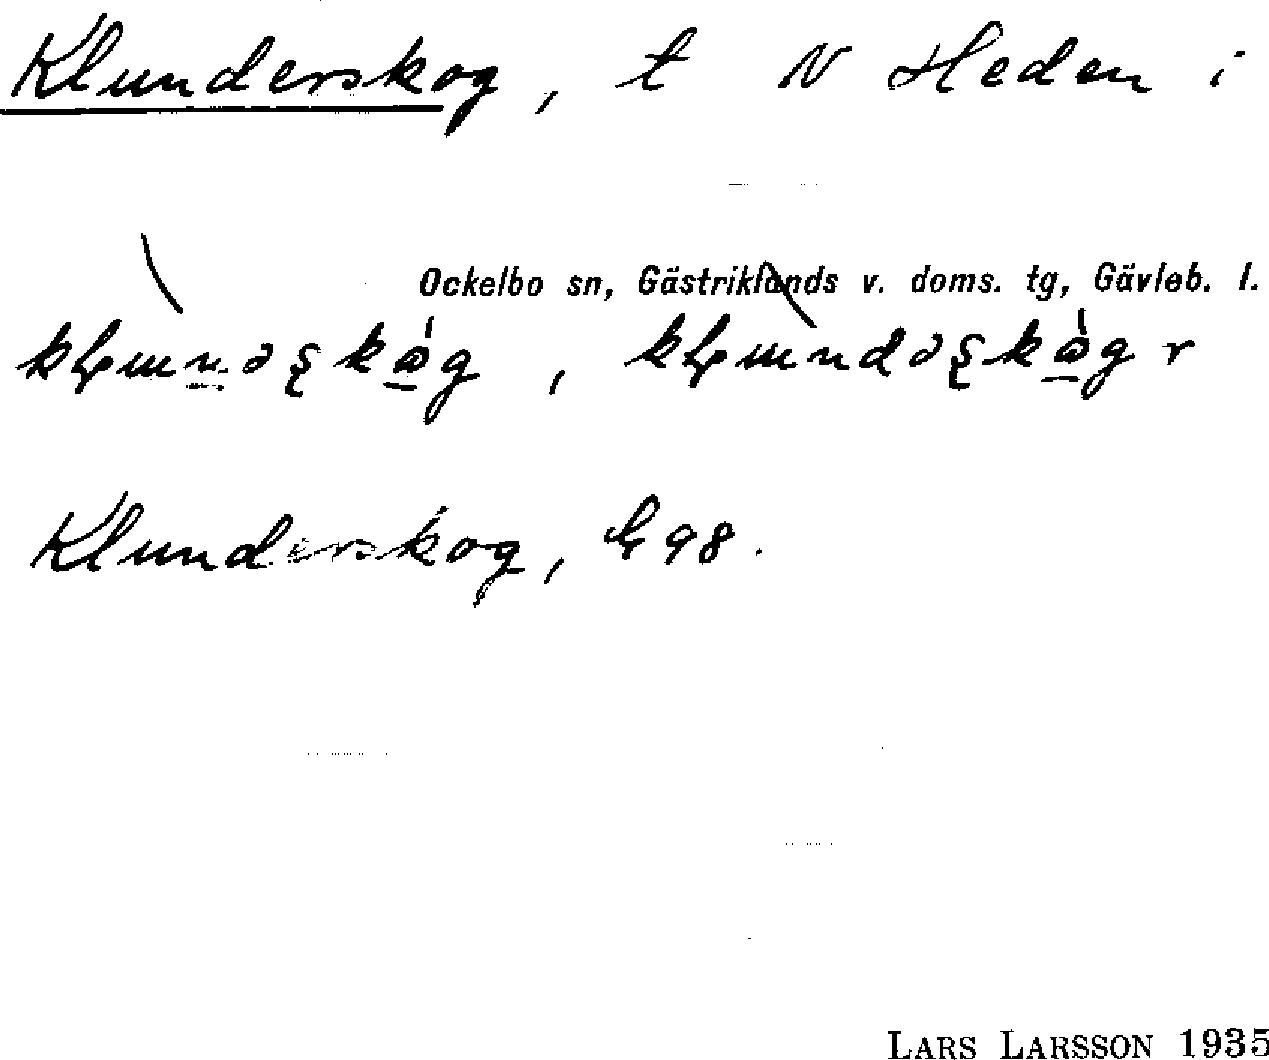 Klunderskog, t N Heden i
Ockelbo sn, Gästriklands v. doms. tg, Gävleb. l.
Klunderskog, G 98.
LARS LARSSON 1935